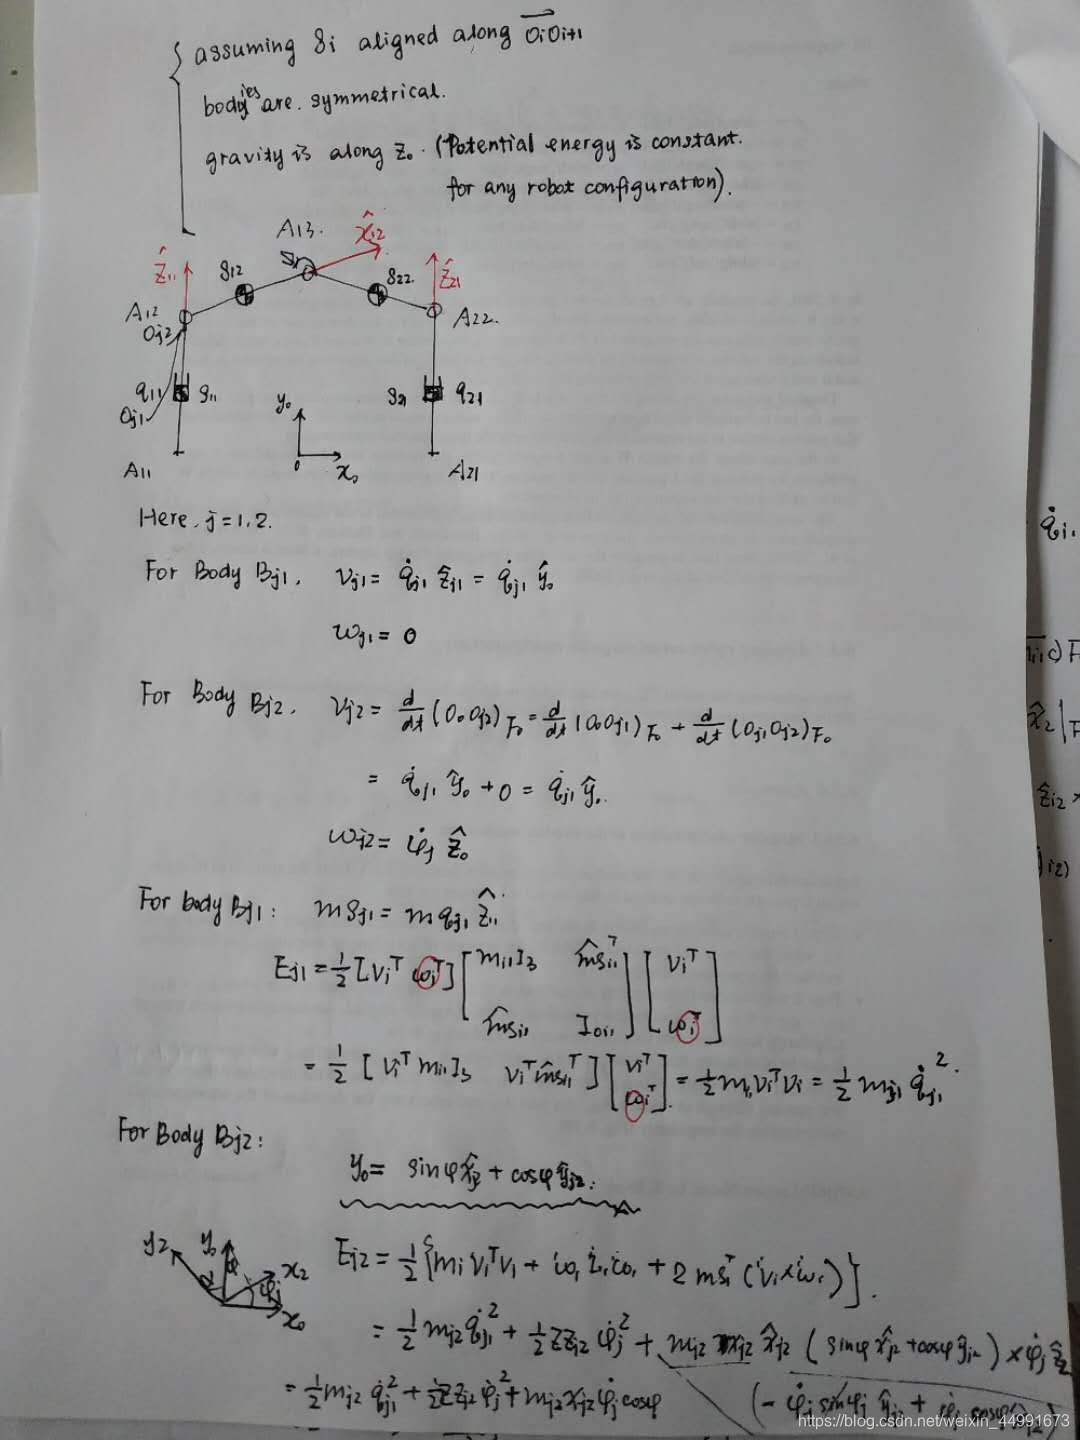 assuming Si aligned along OiOi+1
bodyies are. symmetrical.
gravity is along Z0. (Potential energy is constant.
for any robot configuration).
A13.
x̂12
ẑ11
S12
S22
ẑ21
A12
Oj2
A22.
q11
S11
Oj1
y0
S21
q21
A11
0
x0
A21
Here, j=1,2.
For Body Bj1, Vj1 = q̇j1 ẑj1 = q̇j1 ŷ0
ωj1 = 0
For Body Bj2, Vj2 = d/dt (O0Oj2)F0 = d/dt (O0Oj1)F0 + d/dt (Oj1Oj2)F0
= q̇j1 ŷ0 + 0 = q̇j1 ŷ0.
ωj2 = φ̇j ẑ0
For body Bj1: mSj1 = m qj1 ẑ11
Ej1 = 1/2 [Vi^T ωi^T] [mi1I3 m̂si1^T m̂si1 Ioi1] [Vi^T ωi^T]
= 1/2 [Vi^T mi1I3 Vi^T m̂si1^T] [Vi^T ωi^T] = 1/2 mi Vi^T Vi = 1/2 mj1 q̇j1^2.
For Body Bj2:
y0 = sinφ x̂j2 + cosφ ŷj2.
y2 y0 x2 φj x0
Ej2 = 1/2 {mi Vi^T Vi + ωi Ii ωi + 2 msi^T (Vi × ωi)}.
= 1/2 mj2 q̇j1^2 + 1/2 ZZj2 φ̇j^2 + mj2 xj2 x̂j2 (sinφ x̂j2 + cosφ ŷj2) × φ̇j ẑ
= 1/2 mj2 q̇j1^2 + 1/2 ZZj2 φ̇j^2 + mj2 xj2 φ̇j cosφ
(- φ̇j sinφj ŷj2 + φ̇j cosφ
q̇i1
ẑi2 ×
https://blog.csdn.net/weixin_44991673